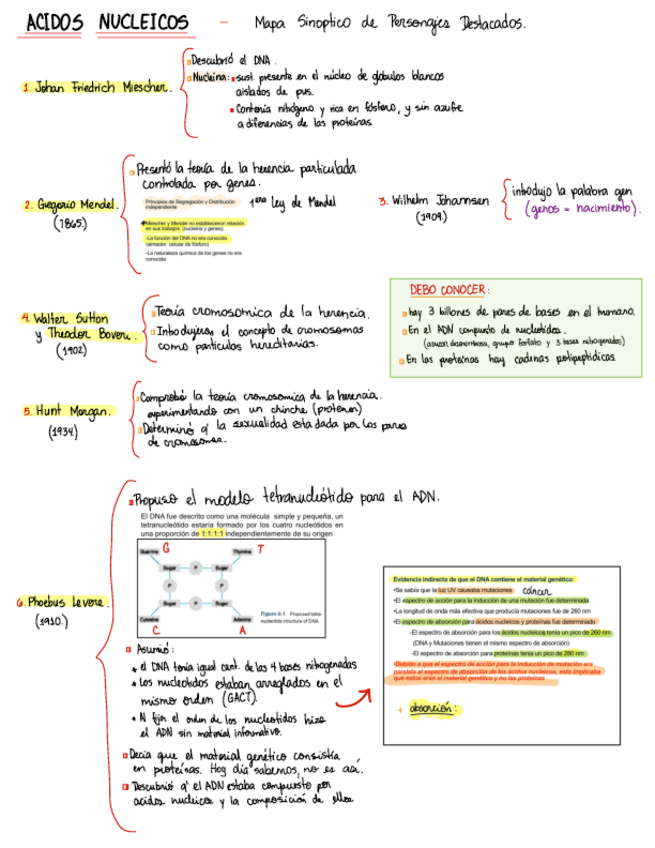 ACIDOS NUCLEICOS - Mapa Sinoptico de Personajes Destacados.
1. Johan Friedrich Miescher.
Descubrió el DNA.
Nucleina: sust. presente en el núcleo de globulos blancos
aislados de pus.
Contenía nitrógeno y rica en fósforo, y sin azufre
a diferencias de las proteínas
2. Gregorio Mendel.
(1865)
Presentó la teoría de la herencia particulada
controlada por genes.
Principios de Segregación y Distribución
independiente
1era ley de Mendel
Miescher y Mendel no establecieron relación
en sus trabajos: (nucleina y genes)
-La función del DNA no era conocida
(almacén celular de fósforo)
-La naturaleza química de los genes no era
conocida
3. Wilhelm Johannsen
(1909)
introdujo la palabra gen
(genos = nacimiento).
4. Walter Sutton
y Theodor Boveri.
(1902)
Teoría cromosomica de la herencia.
Introdujeron el concepto de cromosomas
como particulas hereditarias.
DEBO CONOCER:
hay 3 billones de pares de bases en el humano.
En el ADN compuesto de nucleotidos.
grupo fosfato y 3 bases nitrogenadas)
En las proteínas hay cadenas polipeptídicas.
5. Hunt Morgan.
(1934)
Comprobó la teoría cromosomica de la herencia.
experimentando con un chinche (protenor)
Determinó q' la sexualidad esta dada por los pares
de cromosomas.
6. Phoebus Levene.
(1910)
Propuso el modelo tetranucleótido para el ADN.
El DNA fue descrito como una molécula simple y pequeña, un
tetranucleótido estaría formado por los cuatro nucleótidos en
una proporción de 1:1:1:1 independientemente de su origen
Guanine G Thymine T
Sugar P Sugar
P P
Sugar P Sugar
Cytosine Adenine
C A
Figure 6-1 Proposed tetra-
nucleotide structure of DNA.
Asumió:
el DNA tenia igual cant. de las 4 bases nitrogenadas
Los nucleotidos estaban arreglados en el
mismo orden (GACT).
fijar el orden de los nucleotidos hizo
el ADN sin material informativo.
Decia que el material genético consistía
en proteínas. Hoy día sabemos, no es así.
Descubrió q' el ADN estaba compuesto por
acidos nucleicos y la composición de ellos
Evidencia indirecta de que el DNA contiene el material genético:
•Se sabía que la luz UV causaba mutaciones cáncer
•El espectro de acción para la inducción de una mutación fue determinada
•La longitud de onda más efectiva que producía mutaciones fue de 260 nm
•El espectro de absorción para ácidos nucleicos y proteínas fue determinado
-El espectro de absorción para los ácidos nucleicos tenía un pico de 260 nm
(DNA y Mutaciones tienen el mismo espectro de absorción)
-El espectro de absorción para proteínas tenía un pico de 280 nm
•Debido a que el espectro de acción para inducción de mutación era
paralelo al espectro de absorción de los ácidos nucleicos, esto implicaba
que estos eran el material genético y no las proteínas
+ absorción: